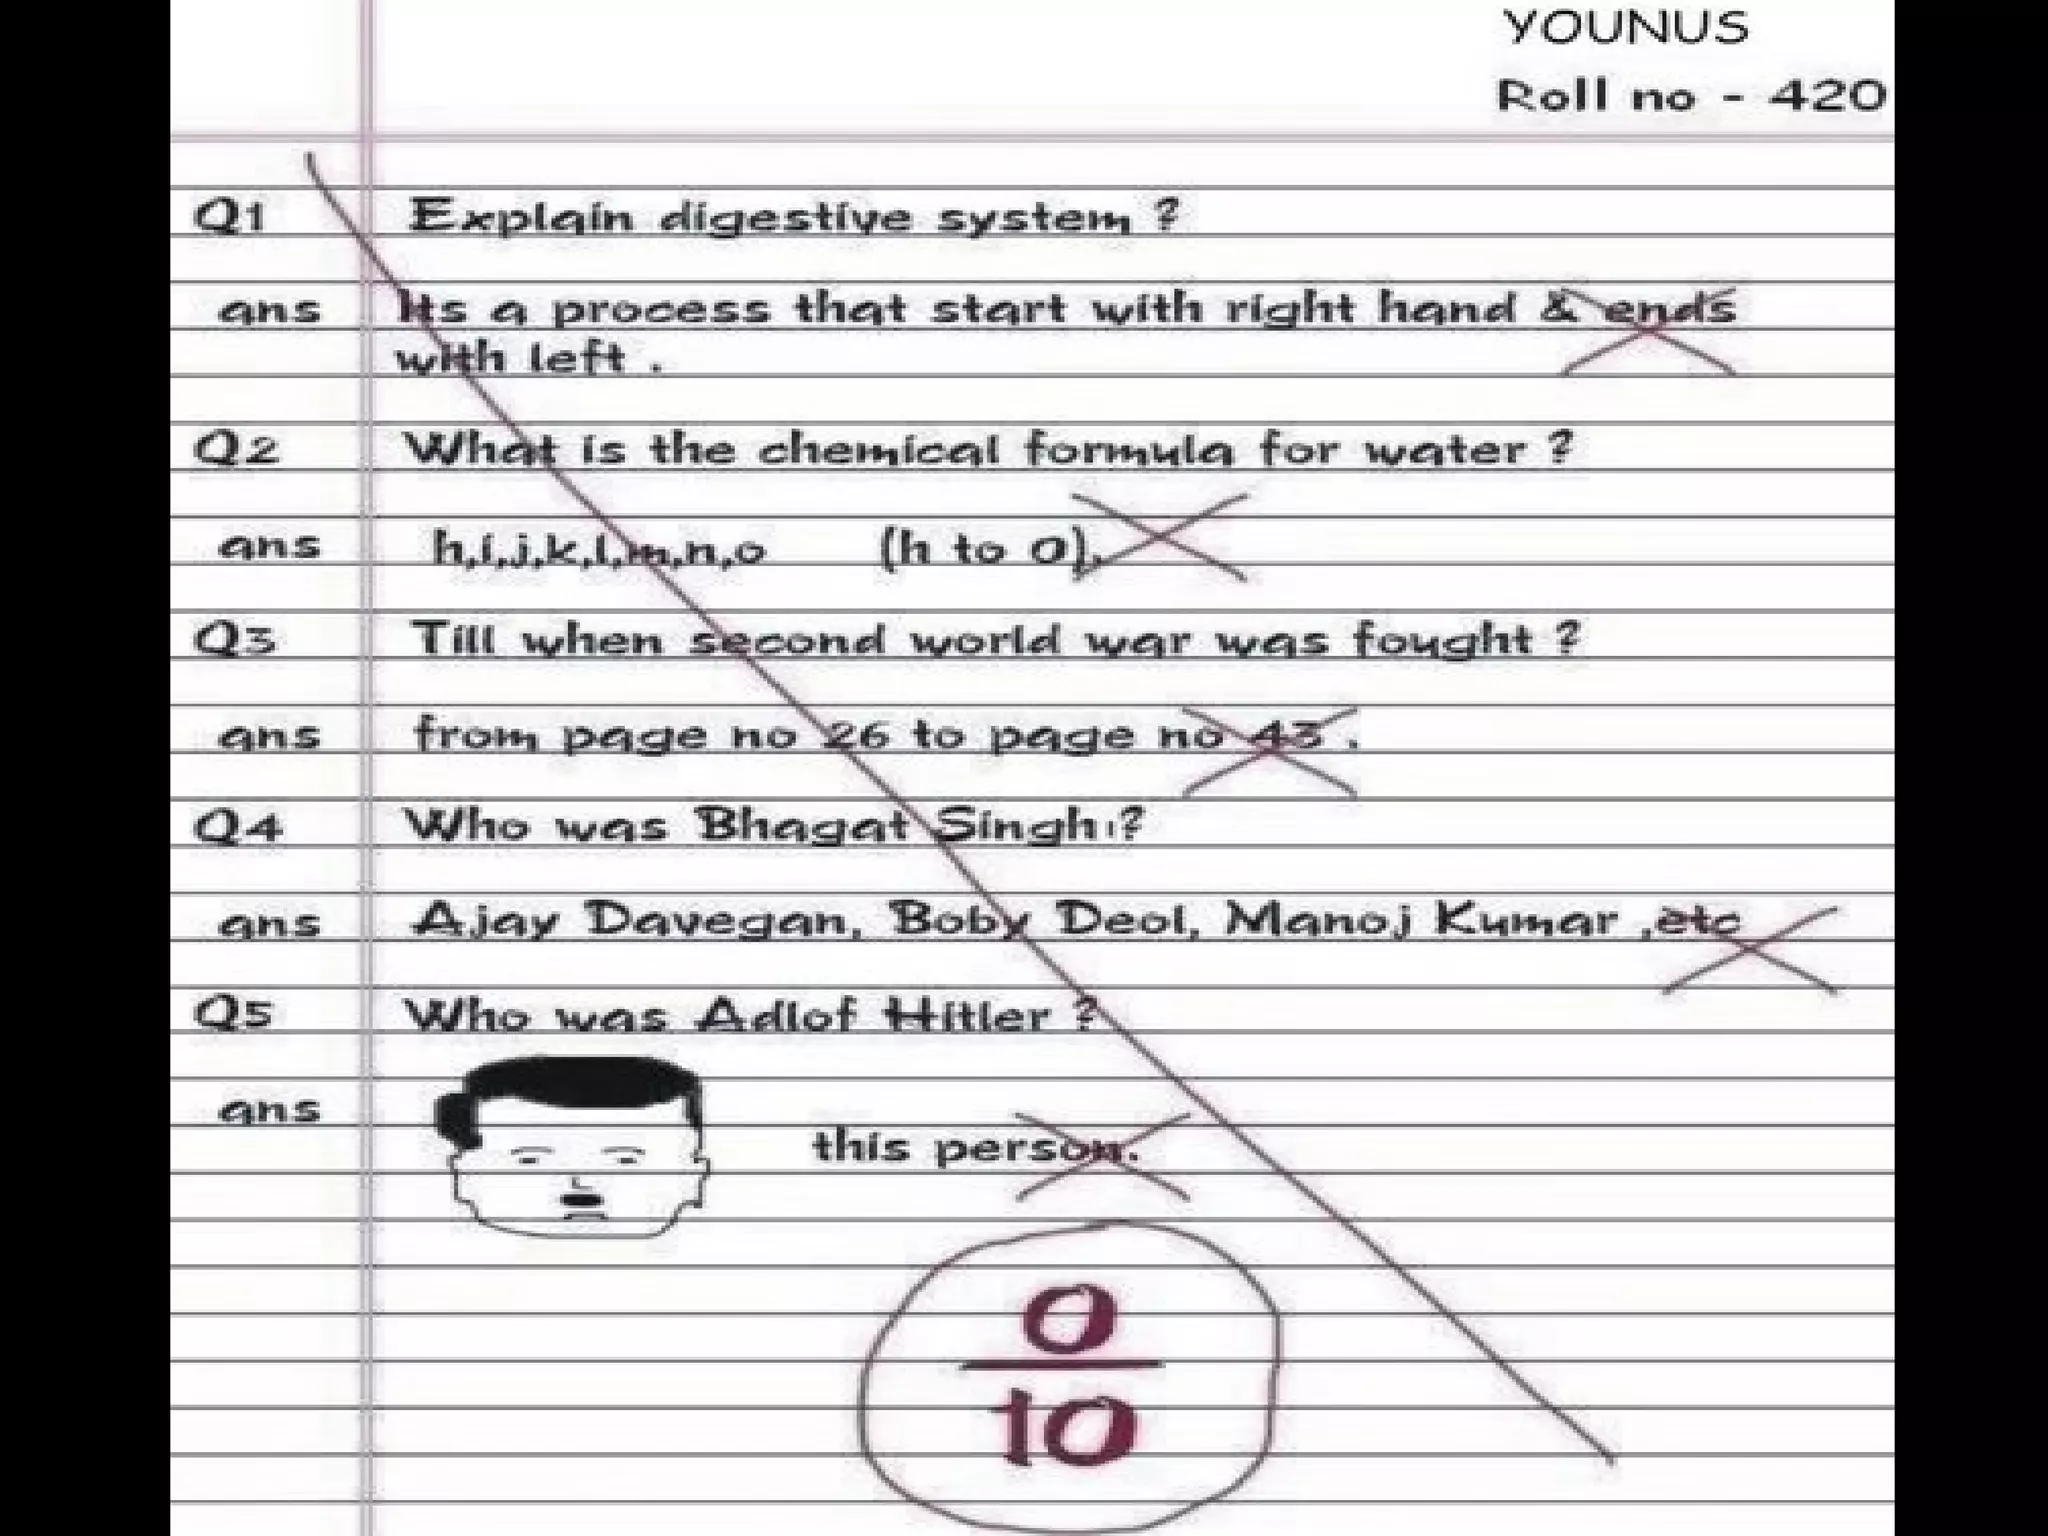 YOUNUS
Roll no - 420
Q1 Explain digestive system ?
ans Its a process that start with right hand & ends
with left .
Q2 What is the chemical formula for water ?
ans h,i,j,k,l,m,n,o (h to o).
Q3 Till when second world war was fought ?
ans from page no 26 to page no 43 .
Q4 Who was Bhagat Singh ?
ans Ajay Davegan, Boby Deol, Manoj Kumar ,etc
Q5 Who was Adlof Hitler ?
ans this person.
0
10